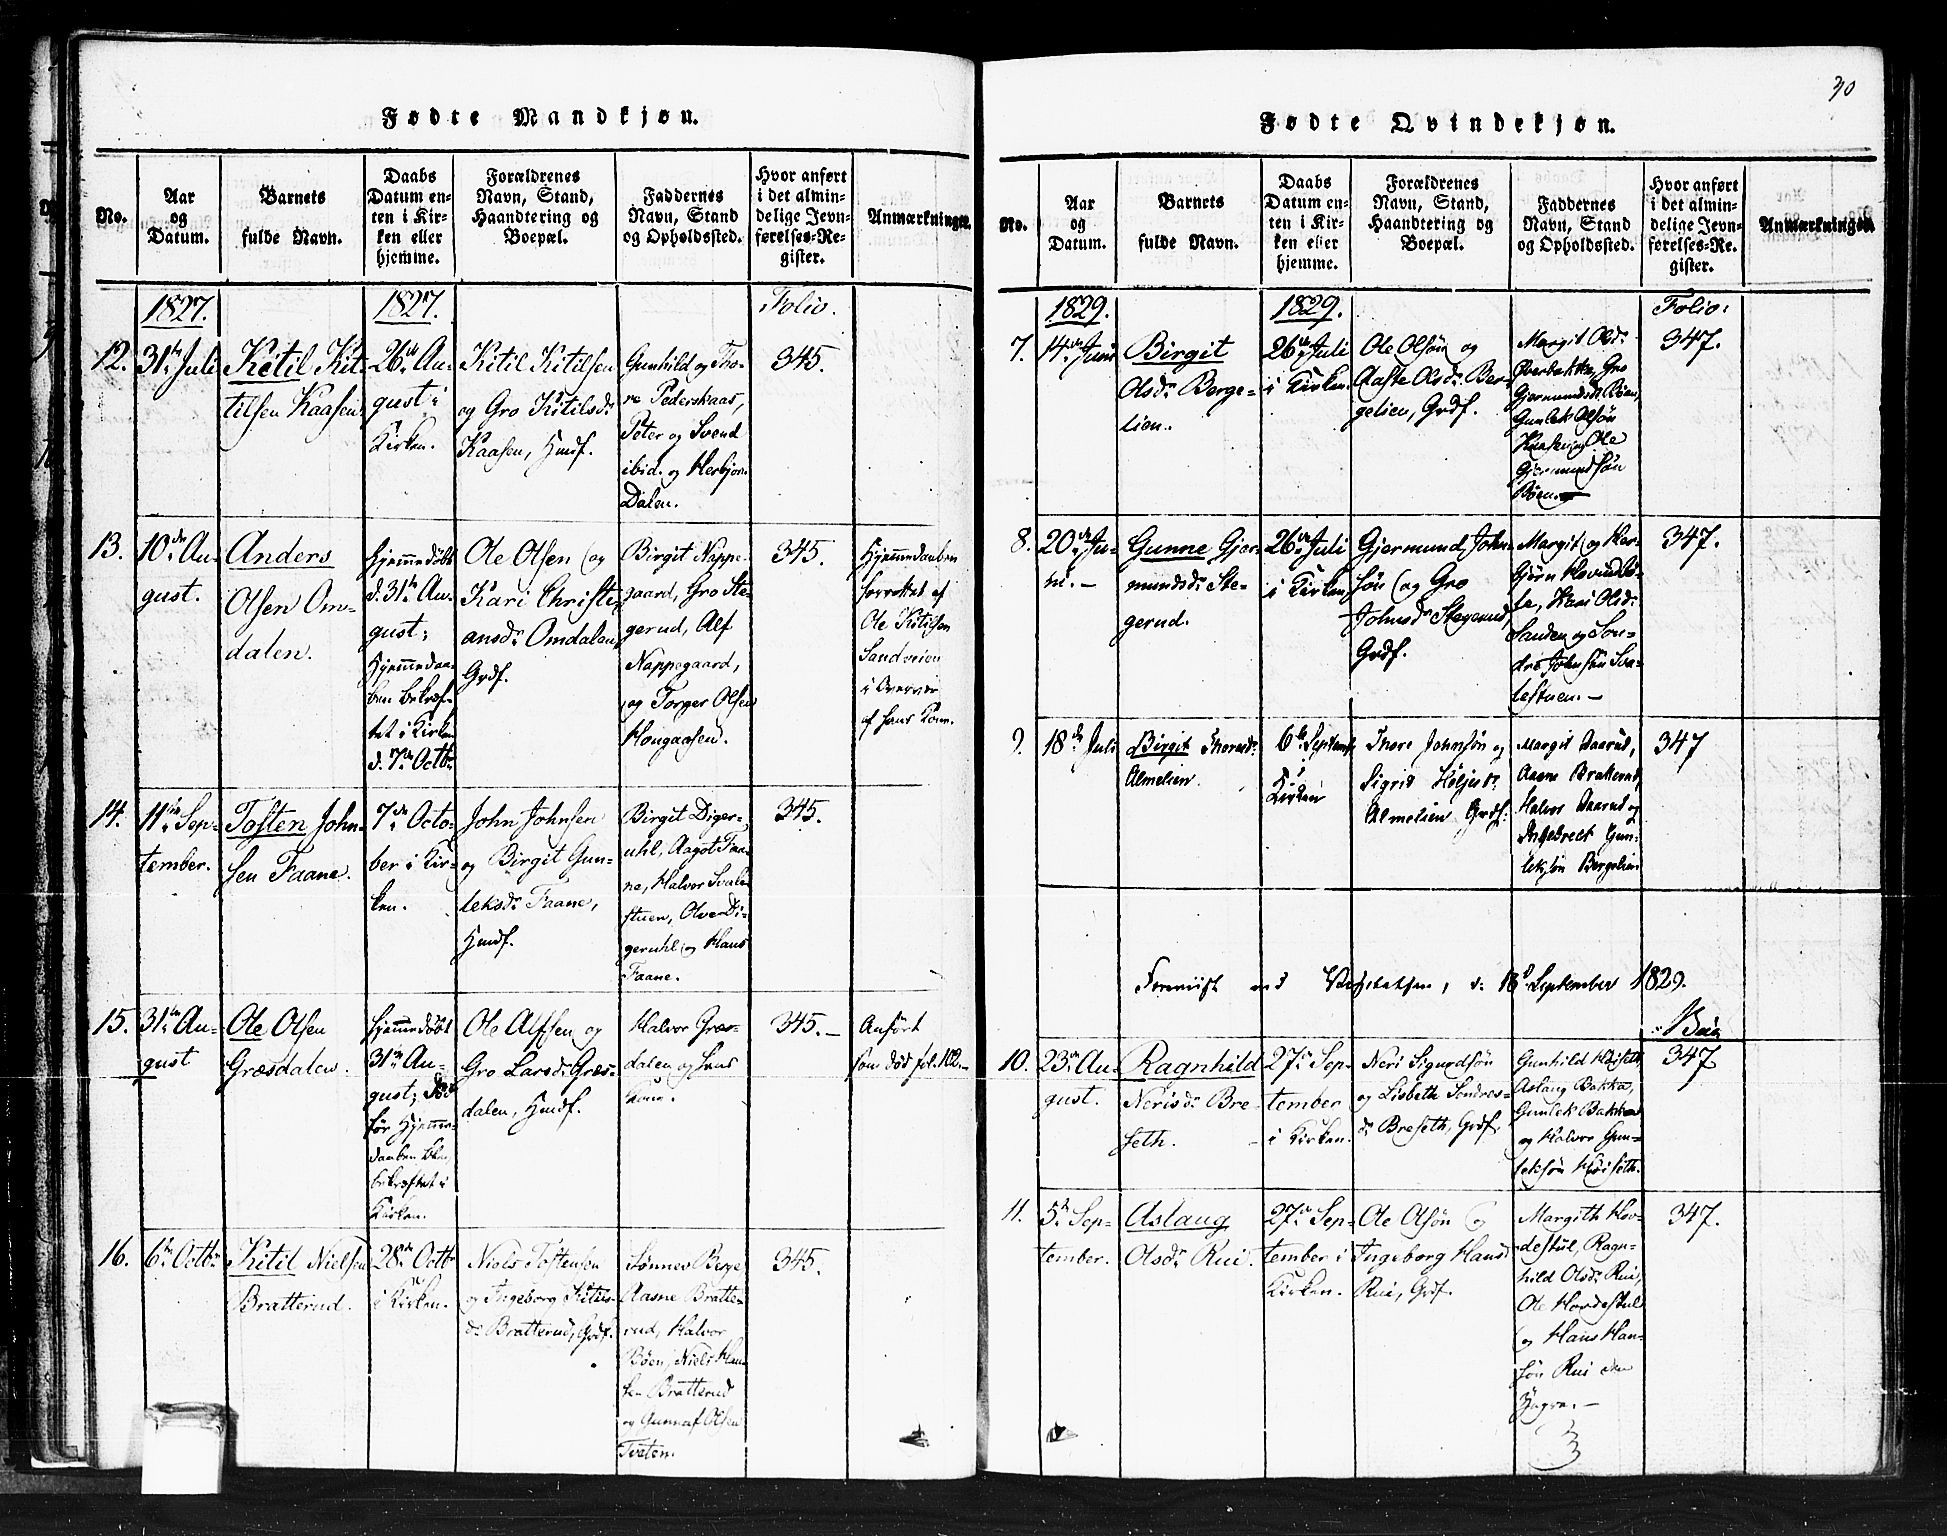 30
Fødte Mandkjøn.
No.
Aar
og
Datum.
Barnets
fulde Navn.
Daabs
Datum en-
ten i Kir-
ken eller
hjemme.
Forældrenes
Navn, Stand,
Haandtering og
Boepæl.
Faddernes
Navn, Stand
og Opholdssted.
Hvor anført
i det almin-
delige Jevn-
førelses-Re-
gister.
Anmærkninger.
1827.
1827.
Folio.
12.
31te Juli
Kitil Kit-
tilsen Kaasen
26de Au-
gust i
Kirken.
Kitil Kitilsen
og Gro Kitilsdr
Kaasen, Huusf.
Gunhild og Tho-
re Pederskaas,
Peter og Svend
ibid. og Herbjørn
Dalen.
345.
13.
10de Au-
gust.
Anders
Olsen Om-
dalen.
Hjemmedøbt
d. 31te Au-
gust;
Hjemmedaa-
ben bekræf-
tet i Kirken
d. 7de Octbr
Ole Olsen og
Kari Christi-
ansdr Omdalen,
Grdf.
Birgit Nappe-
gaard, Gro Ste-
gerud, Alf
Nappegaard,
og Torger Olsen
Hougaasen.
345.
Hjemmedaaben
forrettet af
Ole Kitilsen
Sandveien
i Overvær
af hans Kone.
14.
11te Sep-
tember.
Tosten John-
sen Faane.
7de Octo-
ber i Kir-
ken.
John Johnsen
og Birgit Gun-
leksdr Faane,
Huusf.
Birgit Diger-
uhl, Aagot Faa-
ne, Halvor Svale-
stuen, Olver Di-
geruhl og Hans
Faane.
345.
15.
31te Au-
gust
Ole Olsen
Græsdalen.
Hjemmedøbt
31te Au-
gust; Død
før Hjemme-
daaben blev
bekræftet i
Kirken.
Ole Alfsen og
Gro Larsdr Græs-
dalen, Huusf.
Halvor Græs-
dalen og hans
Kone.
345.-
Anført
som død fol. 102.-
16.
6te Octbr
Kitil Nielsen
Bratterud.
28de Octbr
i Kirken.
Niels Tostensen
og Ingeborg Kitils-
dr Bratterud, Grdf.
Sønnev Berge
Aasne Bratte-
rud, Halvor
Bøen, Niels Han-
sen Bratterud
og Gunnuf Olsen
Tveten.
345.
Fødte Qvindekjøn.
No.
Aar
og
Datum.
Barnets
fulde Navn.
Daabs
Datum en-
ten i Kir-
ken eller
hjemme.
Forældrenes
Navn, Stand,
Haandtering og
Boepæl.
Faddernes
Navn, Stand
og Opholdssted.
Hvor anført
i det almin-
delige Jevn-
førelses-Re-
gister.
Anmærkninger.
1829.
1829.
Folio:
7.
14de Juni
Birgit
Olsdr Berge-
lien.
26de Juli
i Kirken.
Ole Olsøn og
Aaste Olsdr Ber-
gelien, Grdf.
Margit Olsdr
Øverbakka, Gro
Gjermundsdr Bøen,
Gunlek Olsøn
Kaasen og Ole
Gjermundsøn
Bøen.
347.
8.
20de Ju-
ni.-
Gunne Gjer-
mundsdr Ste-
gerud.
26de Juli
i Kirken
Gjermund John-
søn og Gro
Johnsdr Stegerud,
Grdf.
Margit og Her-
bjørn
Kari Olsdr
Sanden og Son-
dre Johnsøn Sva-
lestuen.-
347.
9.
18de Juli
Birgit Thoresdr
Almelien.
6te Septemb.
i
Kirken
Thore Johnsøn og
Sigrid Høljesdr
Almelien Grdf.
Margit Aaarud,
Aasne Bratterud,
Halvor Aaarud og
Ingebrecht Gun-
leksøn Bergelien
347
ved Visitatsen, d. 18d September 1829.
10.
23de Au-
gust.
Ragnhild
Nerisdr Bre-
seth.
27de Sep-
tember
i Kirken.
Neri Sigurdsøn
og Lisbeth Sondres-
dr Breseth, Grdf.
Gunhild Høiseth,
Aslaug Bakka,
Gunlek Bakka
og Halvor Gun-
leksøn Høiseth.
347
11.
5te Sep-
tember.
Aslaug
Olsdr Rui.
27de Sep-
tember i
Kirken.
Ole Olsøn og
Ingeborg Hansdr
Rui, Grdf.
Margith Hov-
destul, Ragn-
hild Olsdr Rui,
Ole Hovdestul
og Hans Han-
søn Rui den
Yngre.-
347.